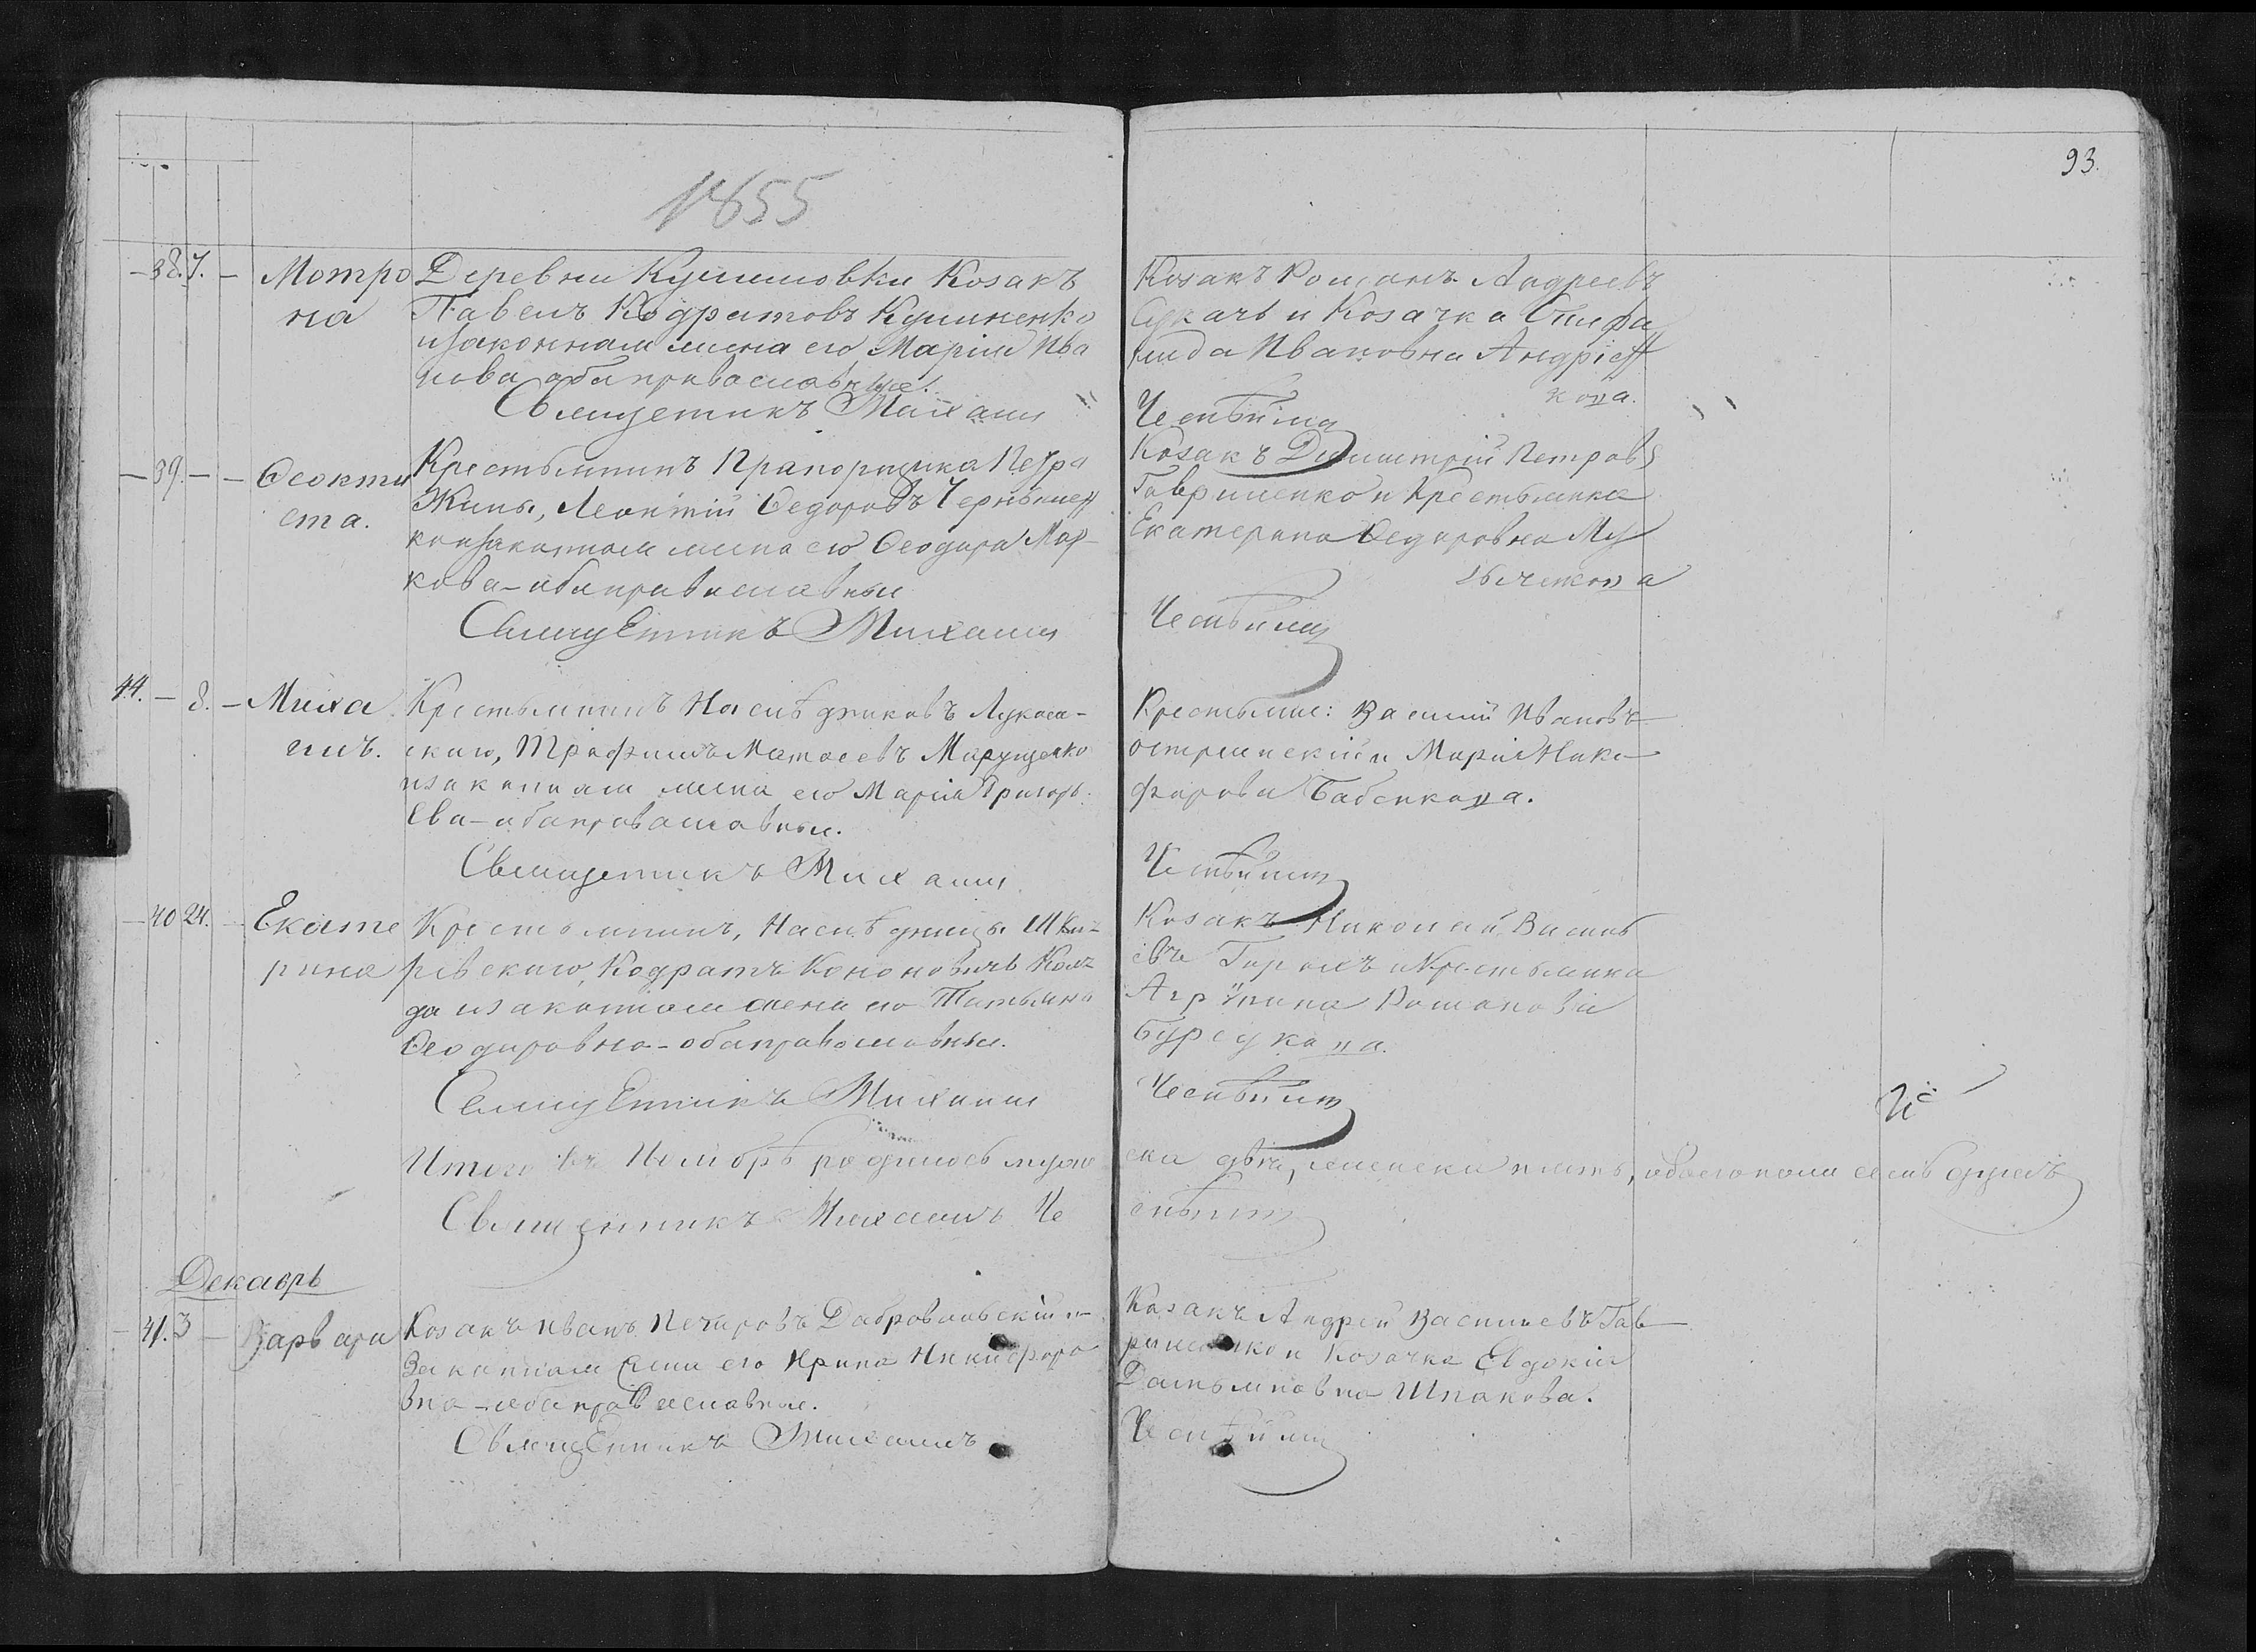 93.
1855
— 38. 7. — Мотро
на
Деревни Кушшовки Козакъ
Павелъ Кодратовъ Кушненко
изаконная жена его Марія Ива
нова оба православные.
Священикъ Михаилъ
Козакъ Романъ Андреевъ
Сукачь и Козачка
Ивановна Андріен
кова.
— 39. — — Ѳеокти
ста.
Крестьянинъ Прапорщика Петра
Жилы, Леонтій Ѳедоровъ
законная жена его Ѳеодора Мар-
кова - оба православные
Священникъ Михаилъ
Козакъ Димитрій Петровъ
Гавриленко и Крестьянка
Екатерина Ѳедоровна
44. — 8. — Миха
илъ.
Крестьянинъ Наслѣдниковъ Лукаше-
скаго, Трофимъ Матѳеевъ Марущенко
изаконная жена его Марія Григорь-
Ева - оба православные.
Священикъ Михаилъ
Крестьяне: Василій Ивановъ
и Марія Ники-
форова Бабенкова.
— 40 24. — Екате
рина
Крестьянинъ, Наслѣдницы
Кодратъ Кононовичъ
да изаконная жена его Татьяна
Ѳеодоровна - оба православные.
Священникъ Михаилъ
Козакъ Николай Василь
евъ и Крестьянка
Агрипина Романова
Бурсукова.
Итого въ Ноябрѣ родилось муже
ска два, женска пять, обоего пола семь душъ
Священникъ Михаилъ
Декабрь
— 41. 3 — Варвара
Козакъ Иванъ Петровъ Добровольскій и
Законная жена его Ирина Никифоро
вна - оба православные.
Священникъ Михаилъ
Козакъ Андрей Васильевъ Гав
риленко и Козачка Евдокія
Демьяновна Шпакова.